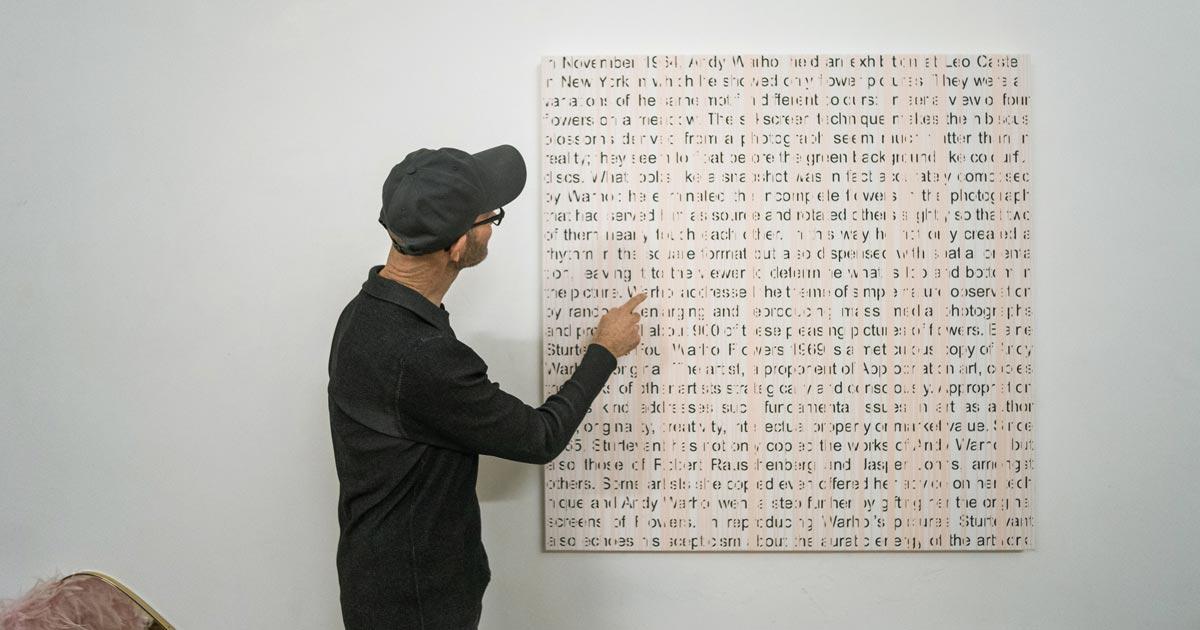 In November 1964, Andy Warhol held an exhibition at Leo Castelli
in New York in which he showed only flower pictures. They were all
variations of the same motif in different colours: an aerial view of four
flowers on a meadow. The silkscreen technique makes the hibiscus
blossoms derived from a photograph seem much flatter than in
reality; they seem to float before the green background like colourful
discs. What looks like a snapshot was in fact accurately composed
by Warhol: he eliminated the incomplete flowers in the photograph
that had served him as source and rotated others slightly so that two
of them nearly touch each other. In this way he not only created a
rhythm in the square format but also dispensed with spatial orienta
tion, leaving it to the viewer to determine what is top and bottom in
the picture. Warhol addressed the theme of simple nature observation
by enlarging and reproducing mass media photographs
and about 900 of these pleasing pictures of flowers. Elaine
Four Warhol Flowers 1969 is a meticulous copy of Andy
original. The artist, a proponent of Appropriation art, copies
of other artists strategically and consciously. Appropriation
kind addresses such fundamental issues in art as author
originality, creativity, intellectual property or market value. Since
Sturtevant has not only copied the works of Andy Warhol but
also those of Robert Rauschenberg and Jasper Johns, amongst
others. Some artists she copied even offered her advice on her tech
nique and Andy Warhol went a step further by gifting her the original
screens of Flowers. In reproducing Warhol's pictures Sturtevant
also echoes his scepticism about the auratic energy of the artwork.